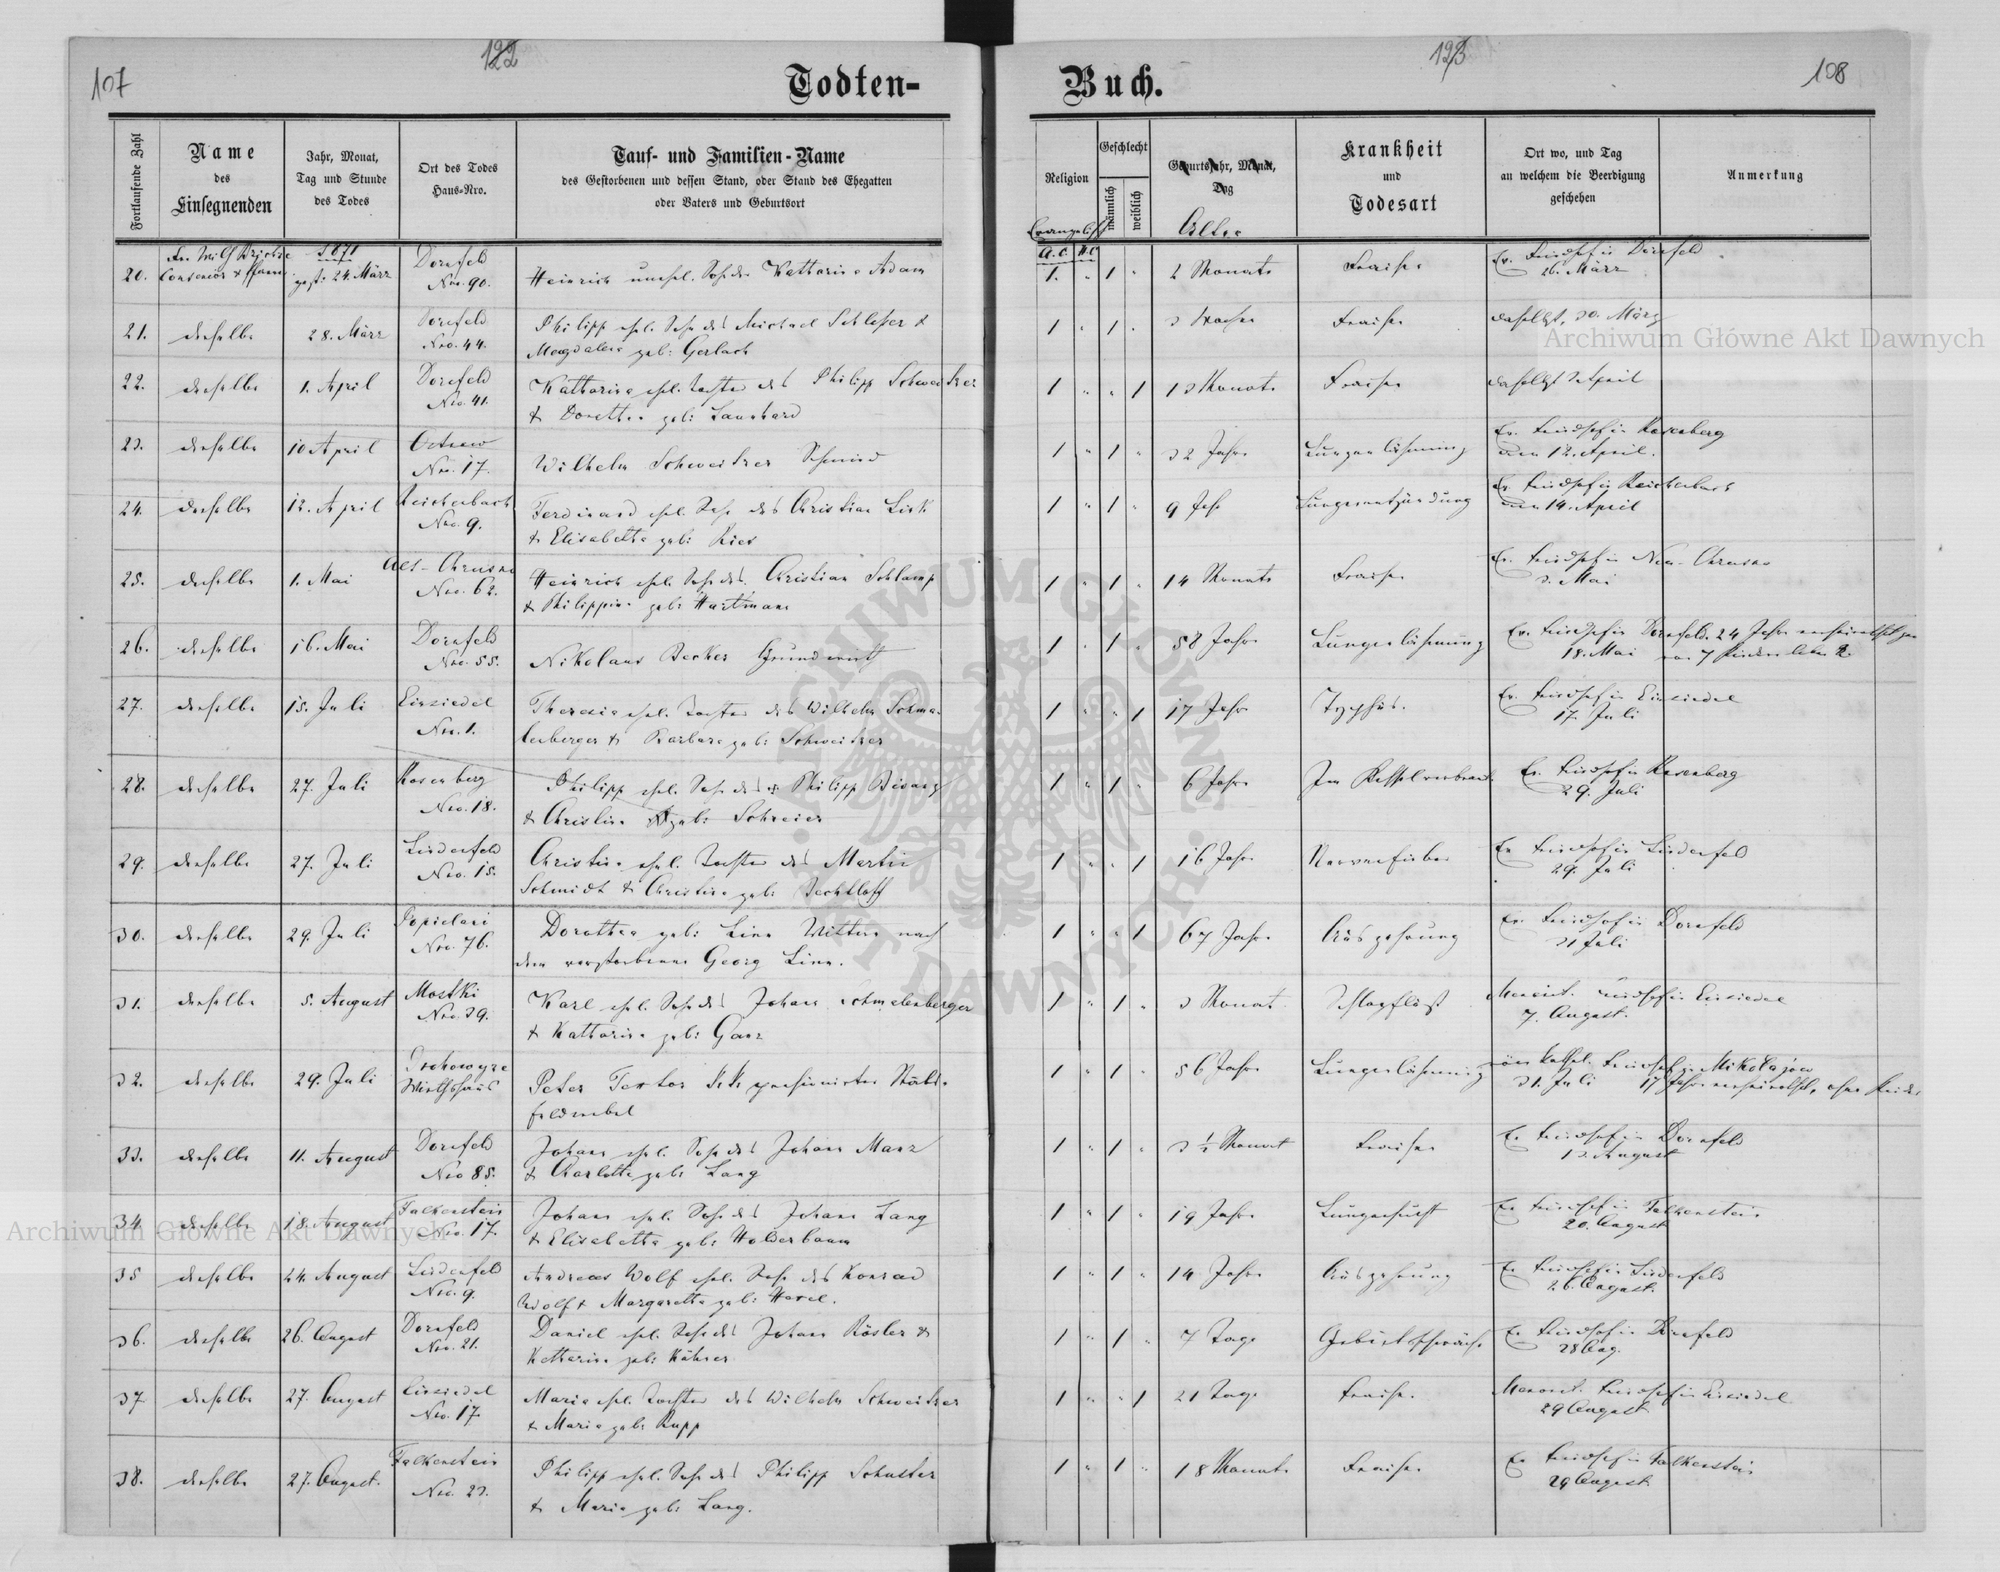 107
122
Todten-
Buch.
123
108
Fortlaufende Zahl
Name
des
Einsegnenden
Jahr, Monat,
Tag und Stunde
des Todes
Ort des Todes
Haus-Nro.
Tauf- und Familien-Name
des Gestorbenen und dessen Stand, oder Stand des Ehegatten
oder Vaters und Geburtsort
Religion
Evangelisch
A.C. H.C.
Geschlecht
männlich
weiblich
Geburtsjahr, Monat,
Tag
Alter
Krankheit
und
Todesart
Ort wo, und Tag
an welchem die Beerdigung
geschehen
Anmerkung
1871
20. gest. 24. März Dornfeld Nro. 90. Heinrich unehel. Sohn der Katharina Adam 1. " 1 " 2 Monate Fraisen Ev. Friedhof in Dornfeld
26. März
21. derselbe 28. März Dornfeld Nro. 44. Philipp ehel. Sohn des Michael Schleser &
Magdalena geb: Gerlach 1 " 1 " 3 Wochen Fraisen daselbst, 30. März
22. derselbe 1. April Dornfeld Nro. 41. Katharina ehel. Tochter des Philipp Schweitzer
& Dorothea geb: Launhard 1 " " 1 13 Monate Fraisen daselbst 3 April
23. derselbe 10 April Nro. 17. Wilhelm Schweitzer Schmied 1 " 1 " 32 Jahre Lungenlähmung Ev. Friedhof in Rosenberg
den 12. April.
24. derselbe 12. April Reichenbach Nro. 9. Ferdinand ehel. Sohn des Christian
& Elisabetha geb: Kies 1 " 1 " 9 Jahr Lungenentzündung Ev. Friedhof in Reichenbach
den 14. April
25. derselbe 1. Mai Alt-Chrusno Nro. 62. Heinrich ehel. Sohn des Christian Schlamp
& Philippina geb: Hartmann 1 " 1 " 14 Monate Fraisen Ev. Friedhof in Neu-Chrusno
3. Mai
26. derselbe 16. Mai Dornfeld Nro. 55. Nikolaus Becker Grundwirth 1 " 1 " 58 Jahre Lungenlähmung Ev. Friedhof in Dornfeld. 24 Jahre verheirathet gew.
18. Mai von 7 Kinder leben 2.
27. derselbe 15. Juli Einsiedel Nro. 1. Theresia ehel. Tochter des Wilhelm Schma-
lenberger & Barbara geb: Schweitzer 1 " " 1 17 Jahre Typhus. Ev. Friedhof in Einsiedel
17. Juli
28. derselbe 27. Juli Rosenberg Nro. 18. Philipp ehel. Sohn des Philipp Bisanz
& Christina geb: Schreier 1 " 1 " 6 Jahre Im Kessel verbrannt Ev. Friedhof in Rosenberg
29. Juli
29. derselbe 27. Juli Lindenfeld Nro. 15. Christina ehel. Tochter des Martin
Schmidt & Christina geb: Bechtloff 1 " " 1 16 Jahre Nervenfieber Ev. Friedhof in Lindenfeld
29. Juli
30. derselbe 29. Juli Popielani Nro. 76. Dorothea geb: Linn Wittwe nach
dem verstorbenen Georg Linn. 1 " " 1 67 Jahre Auszehrung Ev. Friedhof in Dornfeld
31 Juli
31. derselbe 5. August Mostki Nro. 39. Karl ehel. Sohn des Johann Schmalenberger
& Katharina geb: Ganz 1 " 1 " 3 Monat Schlagfluß Menonit. Friedhof in Einsiedel
7. August.
32. derselbe 29. Juli Wirthshaus Peter Textor k.k. pensionirter Stabs-
feldwebel 1 " 1 " 56 Jahre Lungenlähmung röm. kathol. Friedhof in Mikołajow
31. Juli 17 Jahre verheirathet, ohne Kinder
33. derselbe 11. August Dornfeld Nro 85. Johann ehel. Sohn des Johann Manz
& Charlotta geb: Lang 1 " 1 " 3 ½ Monat Fraisen Ev. Friedhof in Dornfeld
13. August
34 derselbe 18. August Falkenstein Nro. 17. Johann ehel. Sohn des Johann Lang
& Elisabetha geb: Holderbaum 1 " 1 " 19 Jahre Lungensucht Ev. Friedhof in Falkenstein
20. August
35 derselbe 24. August Lindenfeld Nro. 9. Andreas Wolf ehel. Sohn des Konrad
Wolf & Margaretha geb: Havel. 1 " 1 " 14 Jahre Auszehrung Ev. Friedhof in Lindenfeld
26. August.
36. derselbe 26. August Dornfeld Nro. 21. Daniel ehel. Sohn des Johann Rösler &
Katharina geb: Kähner 1 " 1 " 7 Tage Geburtsschwäche Ev. Friedhof in Dornfeld
28 Aug.
37 derselbe 27. August Einsiedel Nro. 17 Maria ehel. Tochter des Wilhelm Schweitzer
& Maria geb: Rupp 1 " " 1 21 Tage Fraisen. Menonit. Friedhof in Einsiedel
29 August
38. derselbe 27. August. Falkenstein Nro. 23. Philipp ehel. Sohn des Philipp Schuster
& Maria geb: Lang. 1 " 1 " 18 Monate Fraisen Ev. Friedhof in Falkenstein
29 August
Archiwum Główne Akt Dawnych
Archiwum Główne Akt Dawnych
ARCHIWUM GŁÓWNE
AKT DAWNYCH